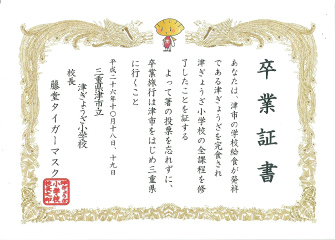 卒業証書
あなたは、津市の学校給食が発祥
である津ぎょうざを完食され
津ぎょうざ小学校の全課程を修
了したことを証する
よって箸の投票を忘れずに、
卒業旅行は津市をはじめ三重県
に行くこと
平成二十六年十月十八日、十九日
三重県津市立
津ぎょうざ小学校
校長
藤堂タイガーマスク